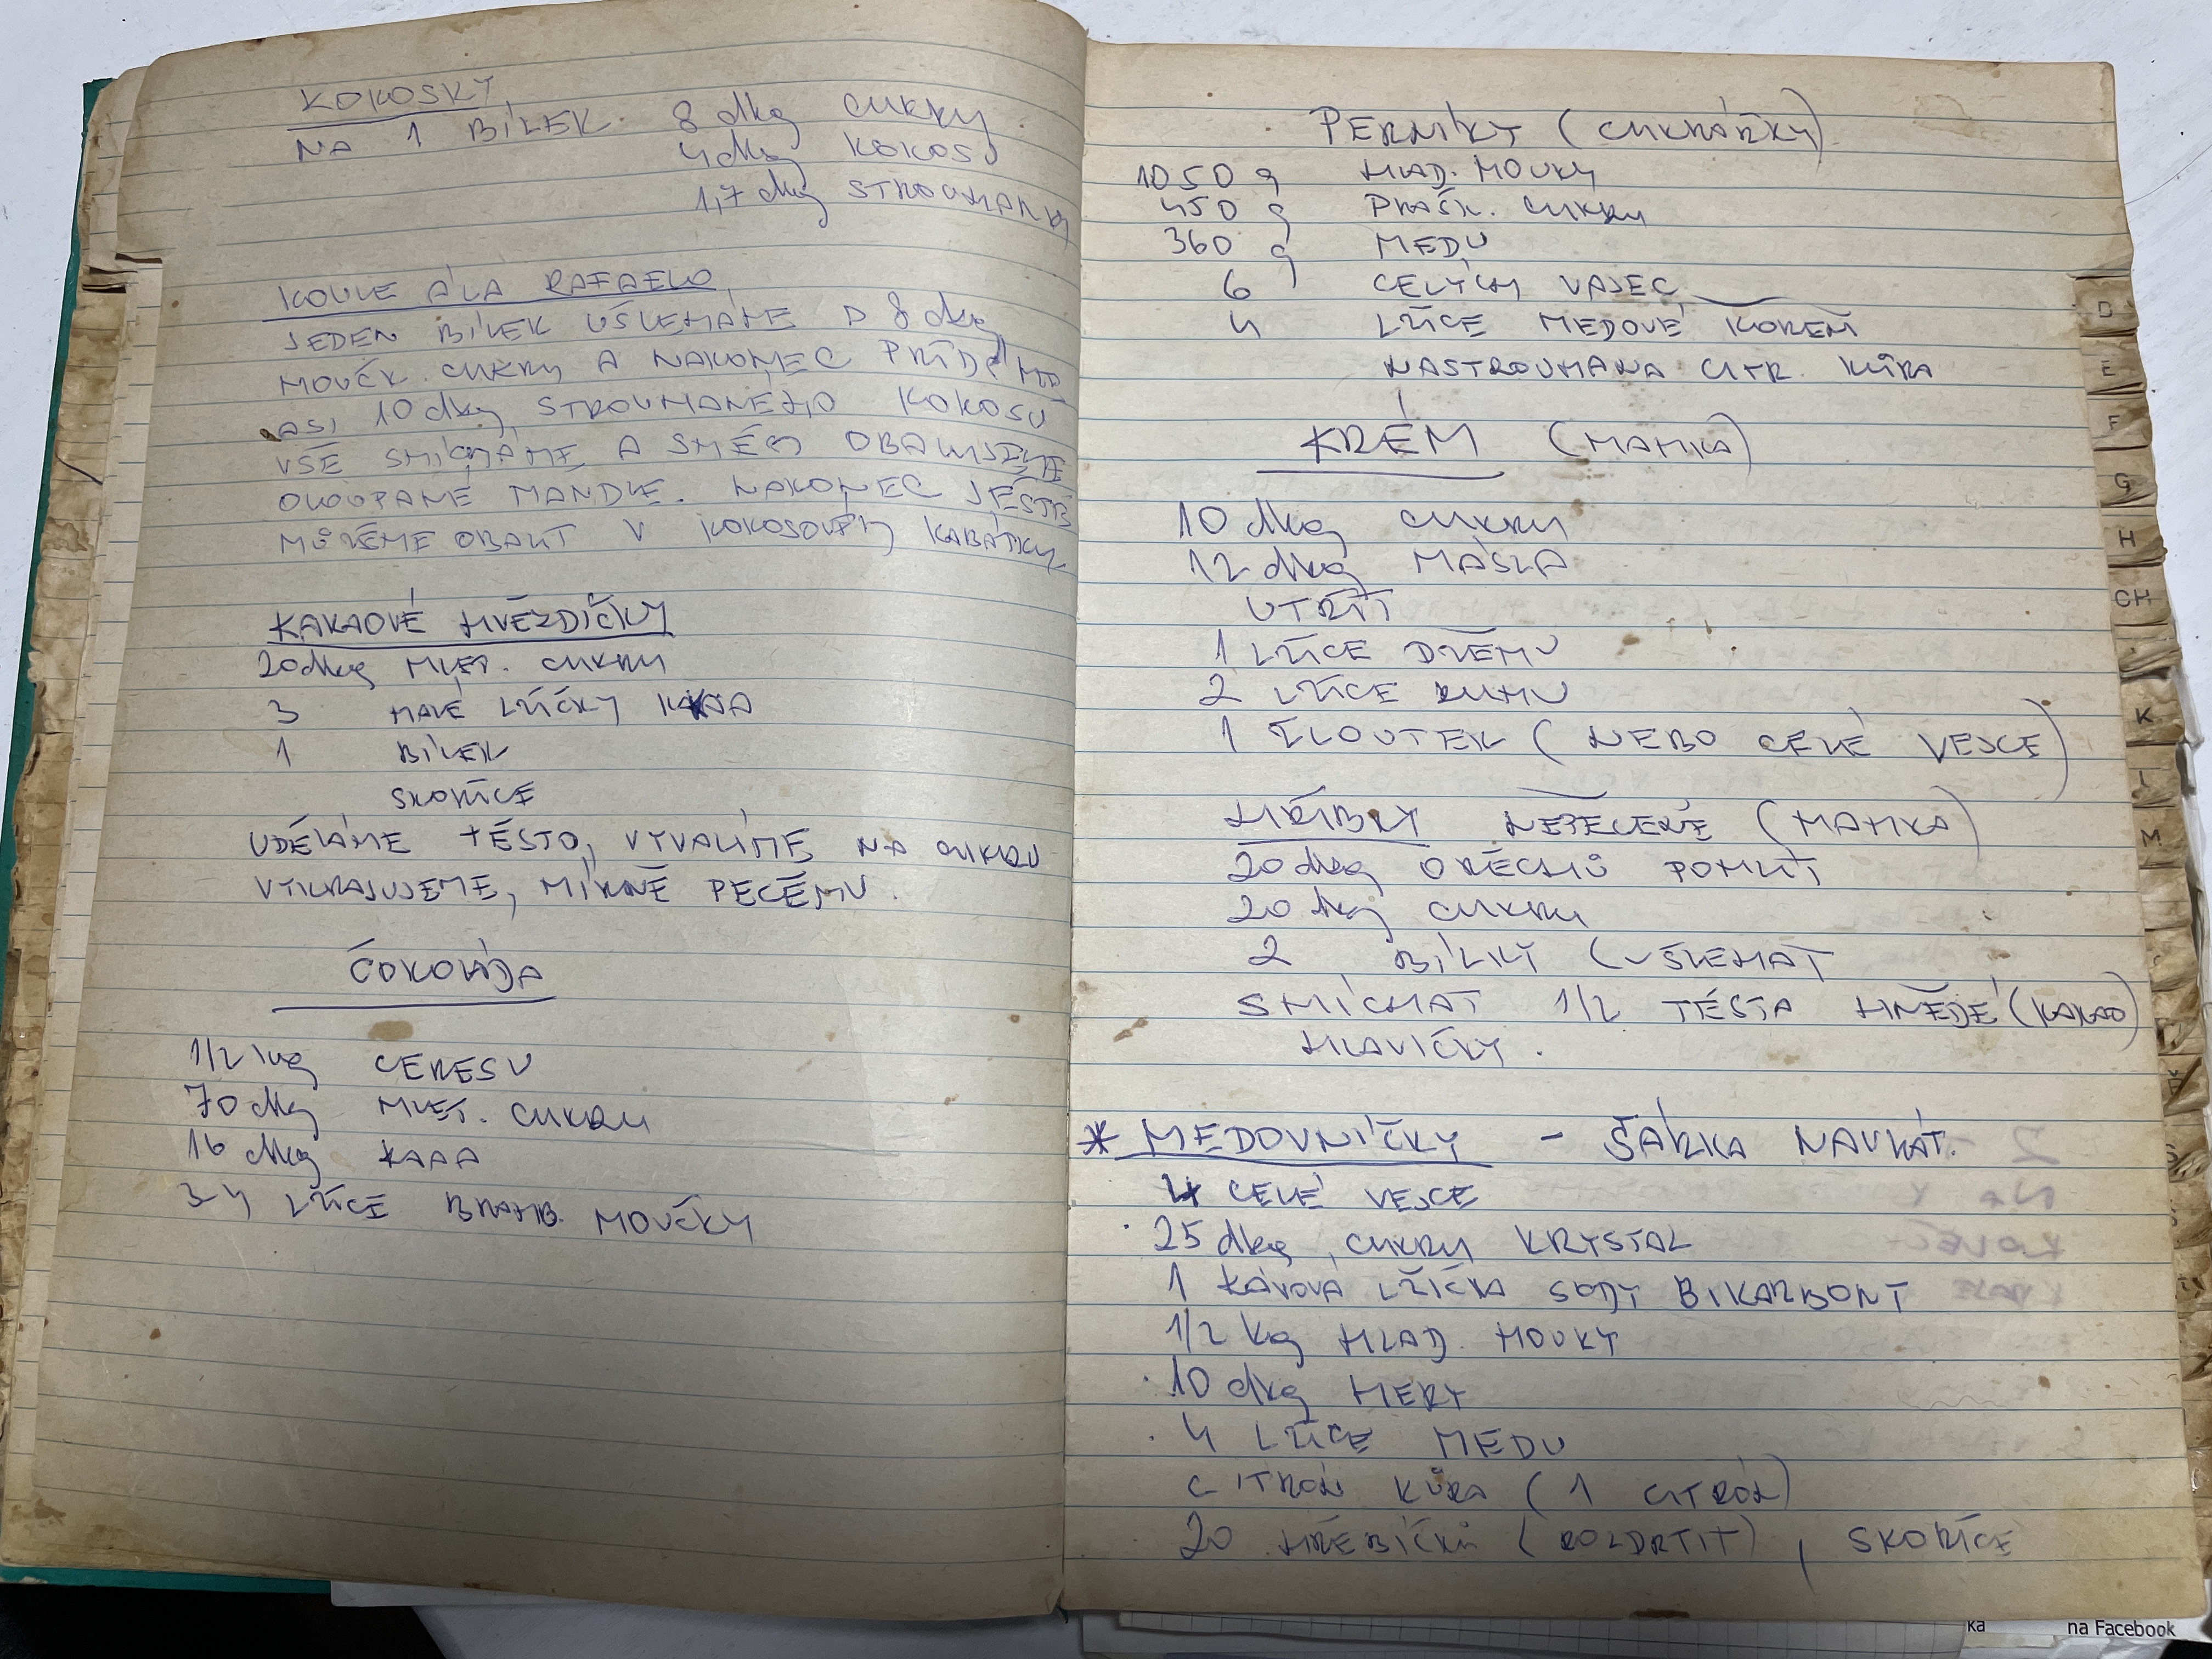 KOKOSKY
NA 1 BÍLEK. 8 dkg CUKRU
4 dkg KOKOS
1,7 dkg STROUHANKY
KOULE ÁLA RAFAELO
JEDEN BÍLEK UŠLEHÁME D 8 dkg
MOUČK. CUKRU A NAKONEC PŘIDÁME
ASI 10 dkg STROUHANÉHO KOKOSU
VŠE SMÍCHÁME A SMĚSÍ OBALUJEME
OLOUPANÉ MANDLE. NAKONEC JEŠTĚ
MŮŽEME OBALIT V KOKOSOVÝ KABÁTKY.
KAKAOVÉ HVĚZDIČKY
20 dkg MLET. CUKRU
3 MALÉ LŽIČKY KAKAA
1 BÍLEK
SKOŘICE
UDĚLÁME TĚSTO, VYVÁLÍME NA CUKRU
VYKRAJUJEME, MÍRNĚ PEČEME.
ČOKOLÁDA
1/2 kg CERESU
70 dkg MLET. CUKRU
16 dkg KAAA
3-4 LŽÍCE BRAMB. MOUČKY
PERNÍKY (CUKRÁŘKY)
1050 g HLAD. MOUKY
450 g PRÁŠK. CUKRU
360 g MEDU
6 CELÝCH VAJEC
4 LŽÍCE MEDOVÉ KOŘENÍ
NASTROUHANÁ CITR. KŮRA
KRÉM (MAMKA)
10 dkg CUKRU
12 dkg MÁSLA
UTŘÍT
1 LŽÍCE DŽEMU
2 LŽÍCE RUMU
1 ŽLOUTEK (NEBO CELÉ VEJCE)
HŘÍBKY NEPEČENÉ (MAMKA)
20 dkg OŘECHŮ POMLÍT
20 dkg CUKRU
2 BÍLKY (UŠLEHAT
SMÍCHAT 1/2 TĚSTA HNĚDÉ (KAKAO)
HLAVIČKY.
* MEDOVNÍČKY - ŠÁRKA NAVRÁT.
4 CELÉ VEJCE
. 25 dkg CUKRU KRYSTAL
1 KÁVOVÁ LŽIČKA SODY BIKARBONY
1/2 kg HLAD. MOUKY
. 10 dkg HERY
. 4 LŽÍCE MEDU
CITRÓN KŮRA (1 CITRÓN)
20 HŘEBÍČKŮ (ROZDRTIT), SKOŘICE
D
E
F
G
H
CH
K
L
M
ka
na Facebook